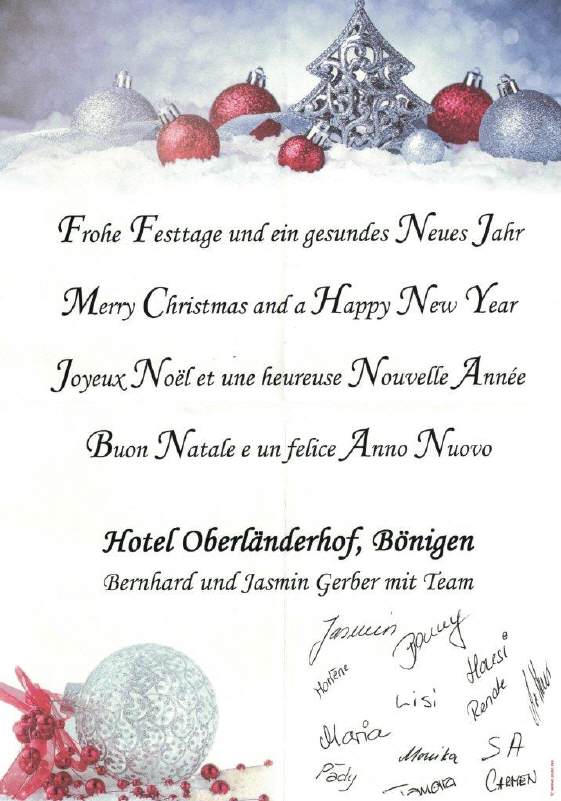 Frohe Festtage und ein gesundes Neues Jahr
Merry Christmas and a Happy New Year
Joyeux Noël et une heureuse Nouvelle Année
Buon Natale e un felice Anno Nuovo
Hotel Oberländerhof, Bönigen
Bernhard und Jasmin Gerber mit Team
Jasmin
Hansi
Lisi
Renate
Maria
Monika
SA
Pädy
Tamara
CARMEN